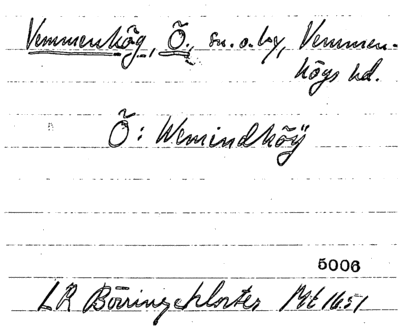 Vemmenhög, Ö., sn. o. by, Vemmen-
högs hd.
Ö: Wemindhöÿ
5006
LR Börringekloster Mt 1651